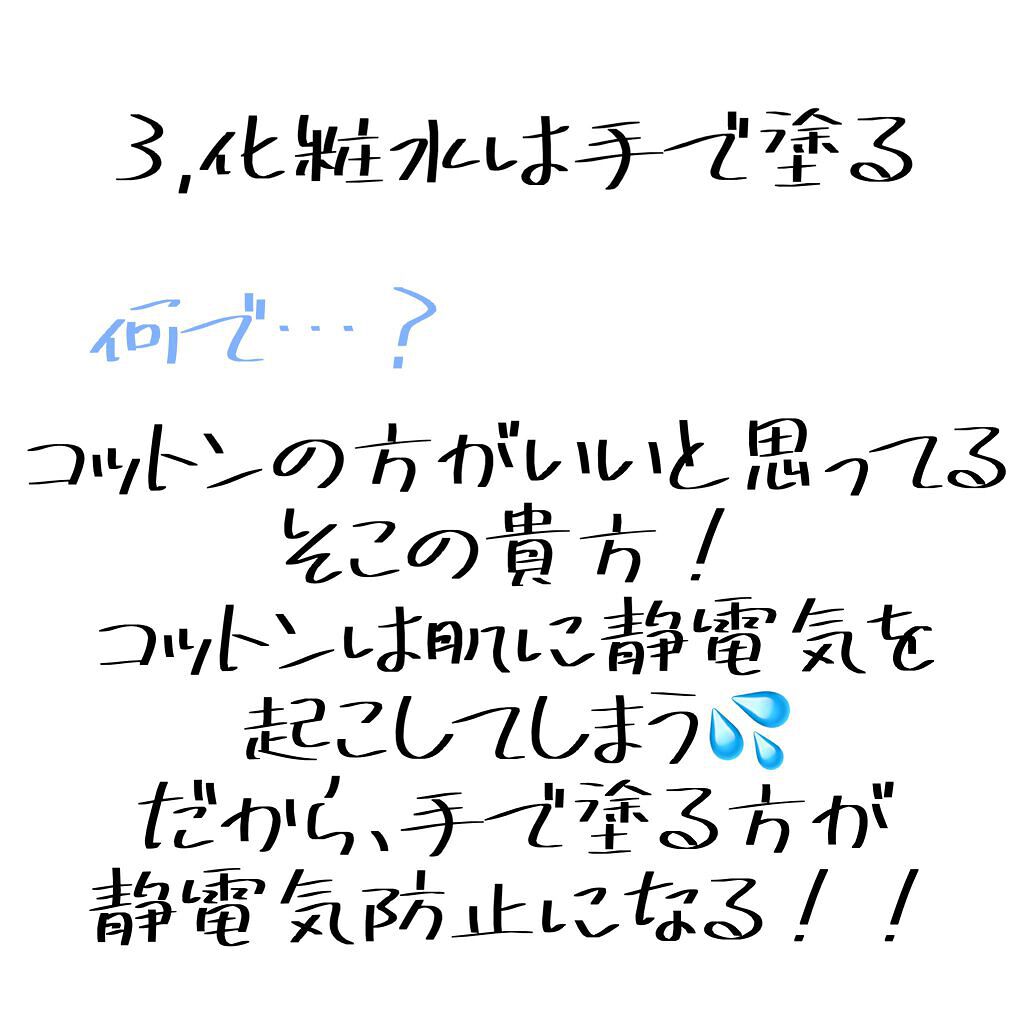 3,化粧水は手で塗る
何で…?
コットンの方がいいと思ってる
そこの貴方!
コットンは肌に静電気を
起こしてしまう💦
だから、手で塗る方が
静電気防止になる!!